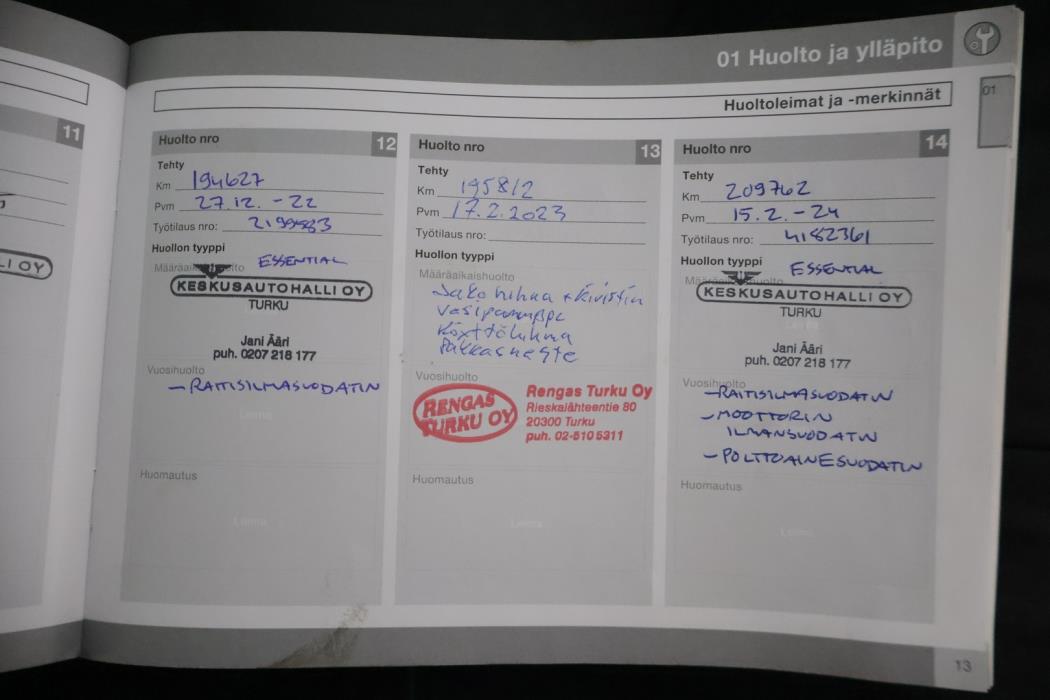 01 Huolto ja ylläpito
Huoltoleimat ja -merkinnät
01
11
LI OY
Huolto nro 12
Tehty
Km 194627
Pvm 27.12. - 22
Työtilaus nro:
Huollon tyyppi
ESSENTIAL
KESKUSAUTOHALLI OY
TURKU
Jani Ääri
puh. 0207 218 177
Vuosihuolto
- RAITISILMASUODATIN
Leima
Huomautus
Leima
Huolto nro 13
Tehty
Km 195812
Pvm 17.2.2023
Työtilaus nro:
Huollon tyyppi
Määräaikaishuolto
Jakohihna + kiristin
Vesipumppu
Vuosihuolto
RENGAS
TURKU OY
Rengas Turku Oy
Rieskalähteentie 80
20300 Turku
puh. 02-510 5311
Huomautus
Leima
Huolto nro 14
Tehty
Km 209762
Pvm 15.2. - 24
Työtilaus nro: 4182361
Huollon tyyppi
ESSENTIAL
KESKUSAUTOHALLI OY
TURKU
Jani Ääri
puh. 0207 218 177
Vuosihuolto
- RAITISILMASUODATIN
- MOOTTORIN
ILMANSUODATIN
- POLTTOAINESUODATIN
Huomautus
Leima
13